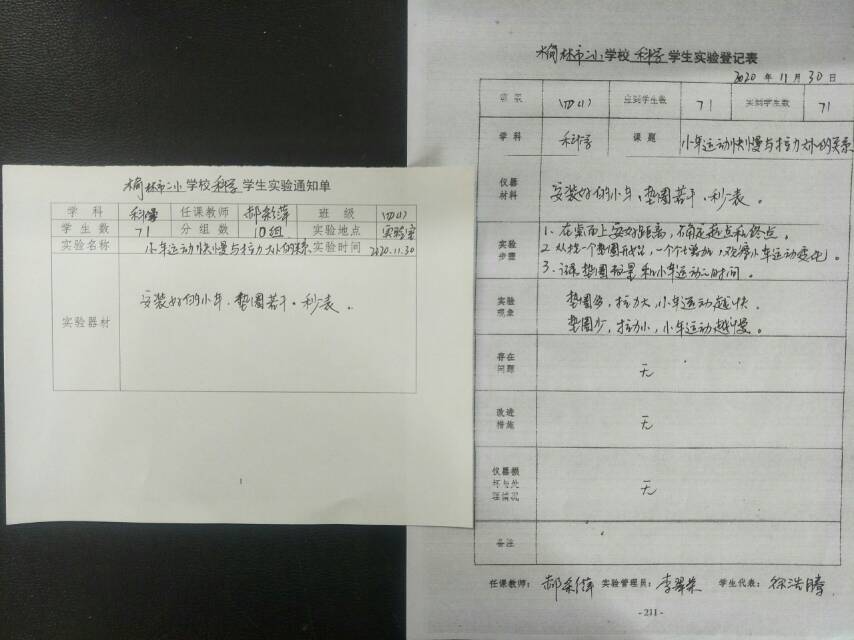 榆林市二小学校科学学生实验通知单
学科 科学 任课教师 郝彩萍 班级 四(1)
学生数 71 分组数 10组 实验地点 实验室
实验名称 小车运动快慢与拉力大小的关系 实验时间 2020.11.30
实验器材 安装好的小车、垫圈若干、秒表。
1
榆林市二小学校科学学生实验登记表
2020年11月30日
班级 四(1) 应到学生数 71 实到学生数 71
学科 科学 课题 小车运动快慢与拉力大小的关系
仪器材料 安装好的小车、垫圈若干、秒表。
实验步骤
1、在桌面上安好距离,确定起点和终点。
2、从挂一个垫圈开始,一个个增加,观察小车运动变化。
3、记录垫圈数量和小车运动的时间。
实验现象
垫圈多,拉力大,小车运动越快。
垫圈少,拉力小,小车运动越慢。
存在问题 无
改进措施 无
仪器损坏与处理情况 无
备注
任课教师:郝彩萍 实验管理员:李翠荣 学生代表:徐浩腾
- 211 -